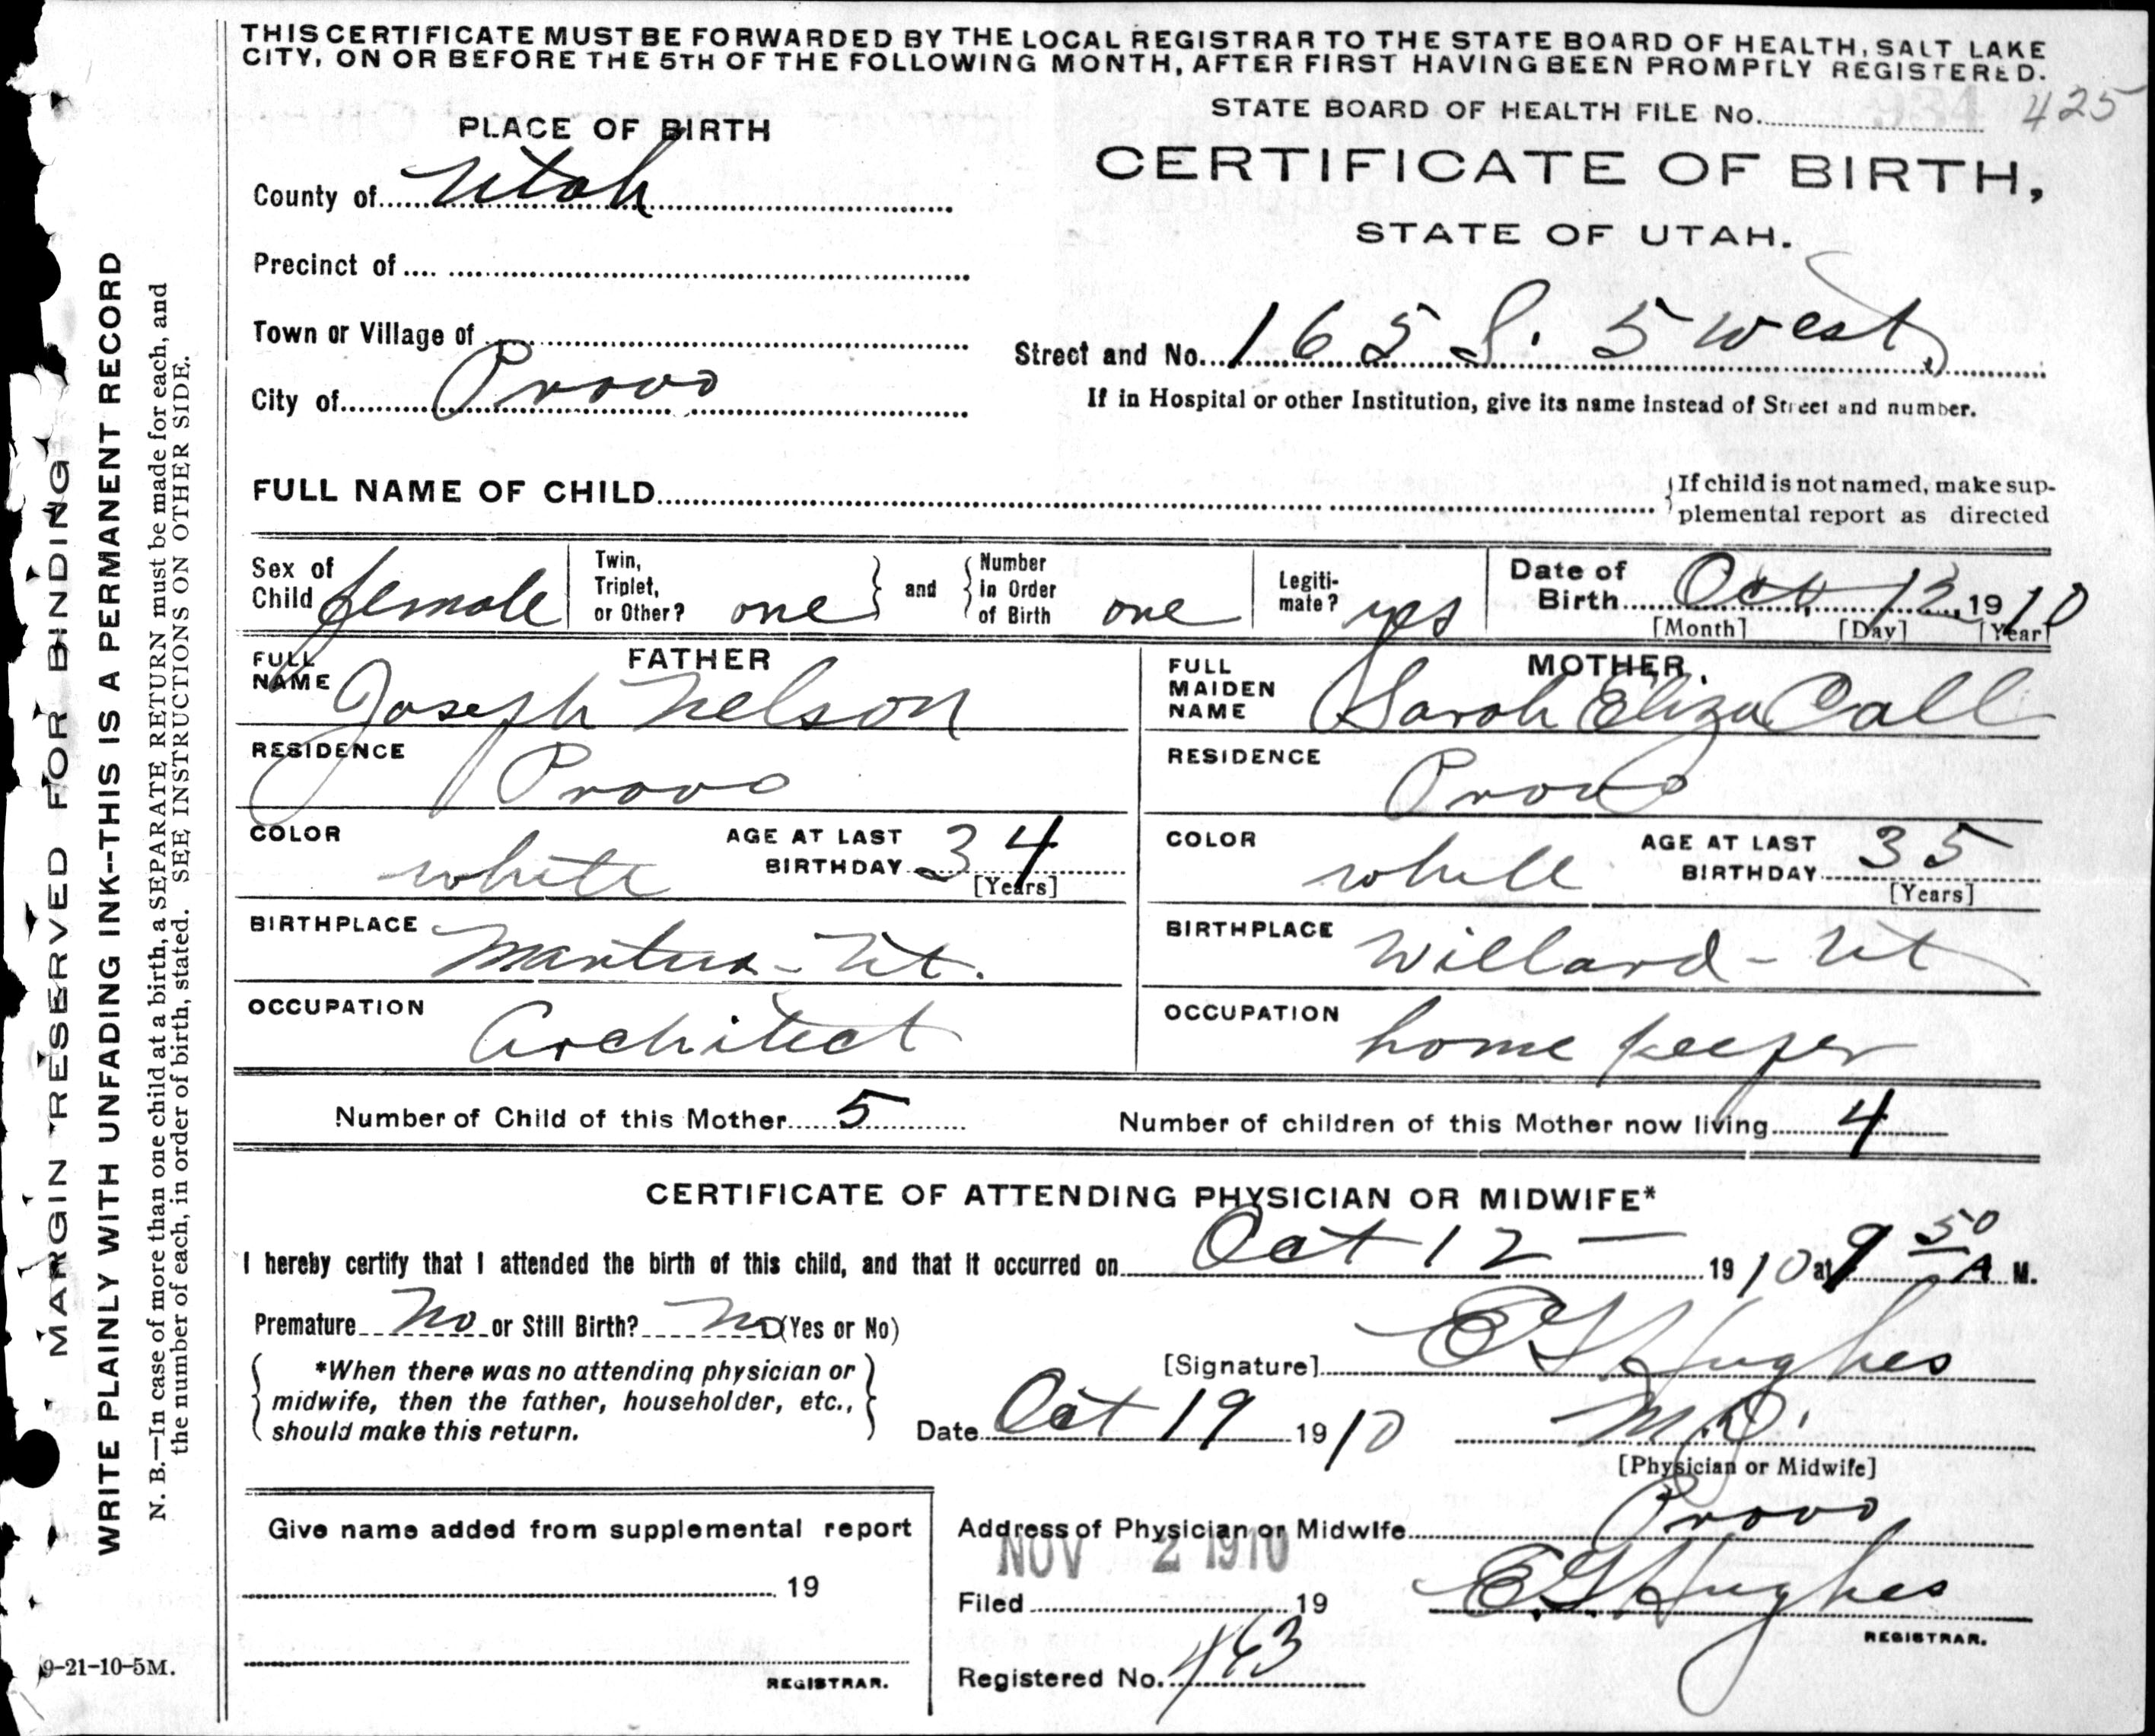 THIS CERTIFICATE MUST BE FORWARDED BY THE LOCAL REGISTRAR TO THE STATE BOARD OF HEALTH, SALT LAKE
CITY, ON OR BEFORE THE 5TH OF THE FOLLOWING MONTH, AFTER FIRST HAVING BEEN PROMPTLY REGISTERED.
STATE BOARD OF HEALTH FILE No. 425
PLACE OF BIRTH
CERTIFICATE OF BIRTH,
STATE OF UTAH.
County of Utah
Precinct of
Town or Village of
Street and No. 165 S. 5 West
City of Provo
If in Hospital or other Institution, give its name instead of Street and number.
FULL NAME OF CHILD
If child is not named, make sup-
plemental report as directed
Sex of Child female
Twin, Triplet, or Other? one
and
Number in Order of Birth one
Legiti-mate? yes
Date of Birth Oct. 12, 1910
[Month] [Day] [Year]
FATHER
FULL NAME Joseph Nelson
RESIDENCE Provo
COLOR white
AGE AT LAST BIRTHDAY 34
[Years]
BIRTHPLACE Mantua - Ut.
OCCUPATION Architect
MOTHER
FULL MAIDEN NAME Sarah Eliza Call
RESIDENCE Provo
COLOR white
AGE AT LAST BIRTHDAY 35
[Years]
BIRTHPLACE Willard - Ut
OCCUPATION home keeper
Number of Child of this Mother 5
Number of children of this Mother now living 4
CERTIFICATE OF ATTENDING PHYSICIAN OR MIDWIFE*
I hereby certify that I attended the birth of this child, and that it occurred on Oct 12 - 1910 at 9 50 A M.
Premature No or Still Birth? No (Yes or No)
*When there was no attending physician or
midwife, then the father, householder, etc.,
should make this return.
[Signature] E G Hughes
Date Oct 19 1910 M.D.
[Physician or Midwife]
Give name added from supplemental report
19
REGISTRAR.
Address of Physician or Midwife Provo
NOV 2 1910
Filed 19 E. G Hughes
REGISTRAR.
Registered No. 463
9-21-10-5M.
MARGIN RESERVED FOR BINDING
WRITE PLAINLY WITH UNFADING INK--THIS IS A PERMANENT RECORD
N. B.—In case of more than one child at a birth, a SEPARATE RETURN must be made for each, and
the number of each, in order of birth, stated. SEE INSTRUCTIONS ON OTHER SIDE.